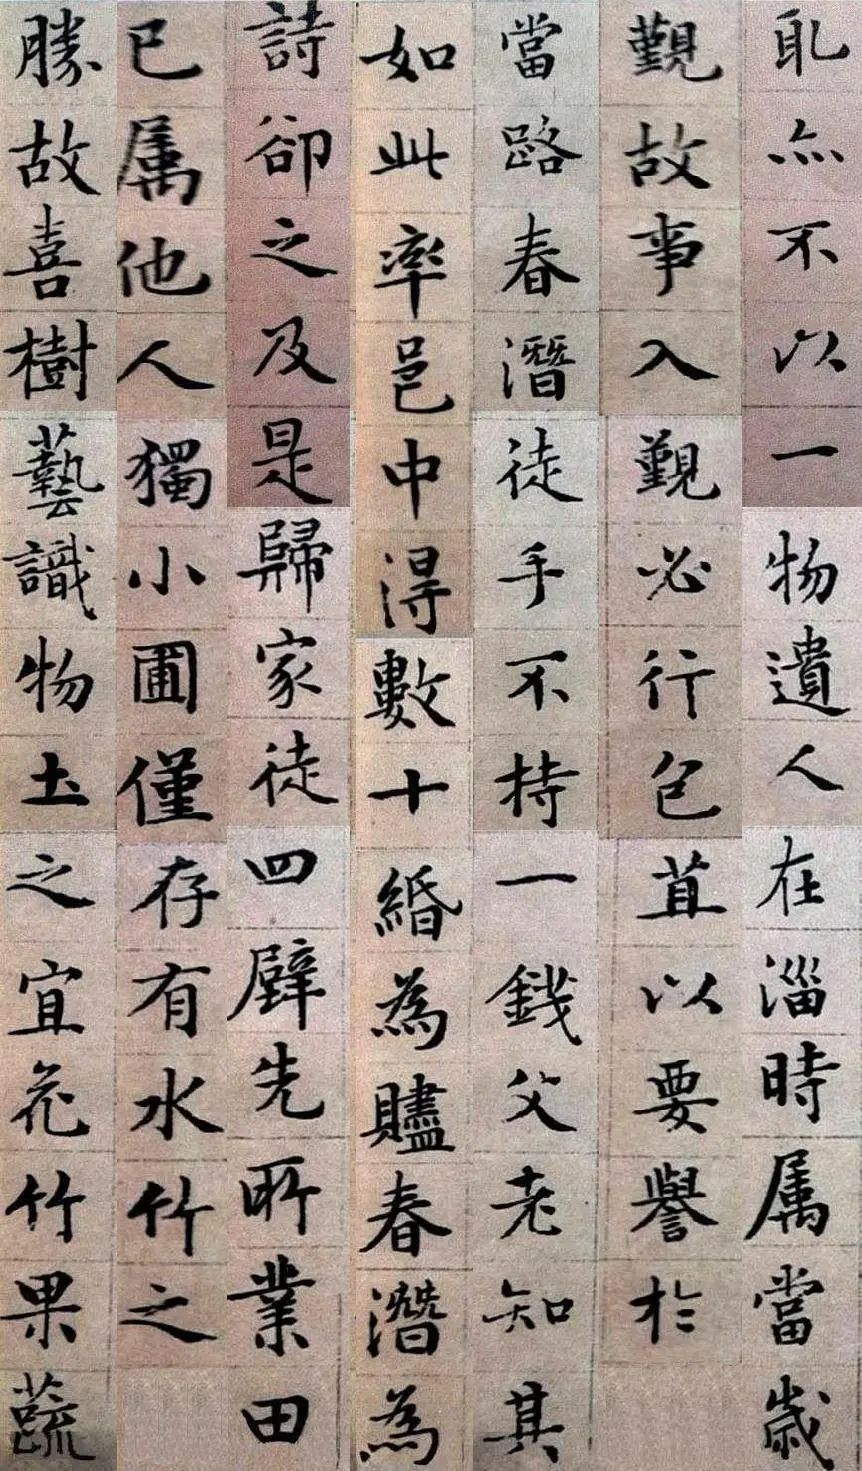 耴亦不以一物遺人在淄時属當歲
覲故事入覲必行包苴以要譽於
當路春潛徒手不持一錢父老知其
如此率邑中得數十緡為贐春潛為
詩卻之及是歸家徒四壁先所業田
已属他人獨小圃僅存有水竹之
勝故喜樹藝識物土之宜花竹果蔬